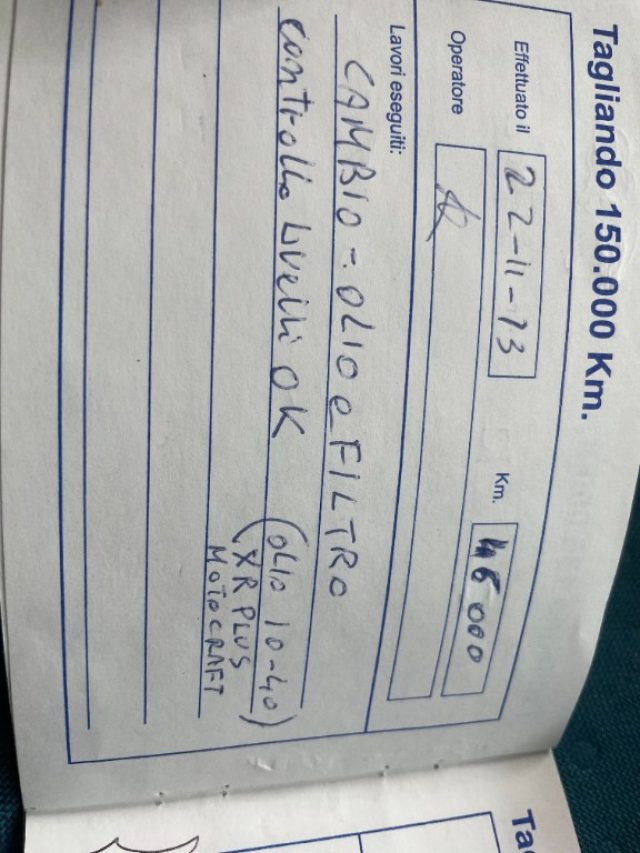 Tagliando 150.000 Km.
Effettuato il 22-11-13 Km. 46000
Operatore
Lavori eseguiti:
CAMBIO-OLIO e FILTRO
controllo livelli OK (OLIO 10-40)
(XR PLUS
MOTOCRAFT
Ta